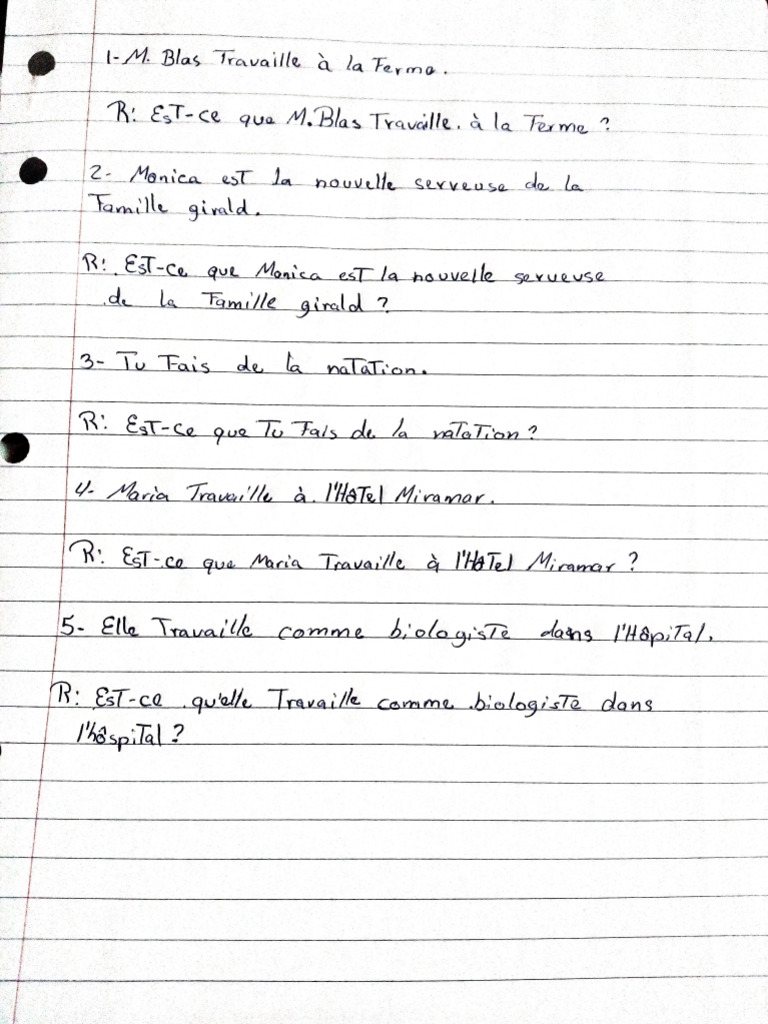 1- M. Blas Travaille à la Ferme.
R: EsT-ce que M. Blas Travaille. à la Ferme ?
2- Monica esT la nouvelle serveuse de la
Famille girald.
R: EsT-ce que Monica esT la nouvelle serveuse
de la Famille girald ?
3- Tu Fais de la naTaTion.
R: EsT-ce que Tu Fais de la naTaTion ?
4- Maria Travaille à l'HôTel Miramar.
R: EsT-ce que Maria Travaille à l'HôTel Miramar ?
5- Elle Travaille comme biologisTe dans l'HôpiTal.
R: EsT-ce qu'elle Travaille comme biologisTe dans
l'hôspiTal ?